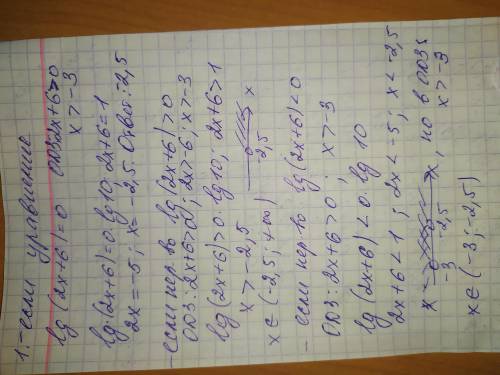 1. - если уравнение
lg (2x+6)=0 ОДЗ 2x+6>0
x>-3
lg(2x+6)=0·lg10; 2x+6=1
2x=-5; x=-2,5. Ответ: -2,5
- если нер-во lg(2x+6)>0
ОДЗ: 2x+6>0; 2x>-6; x>-3
lg(2x+6)>0·lg10; 2x+6>1
x>-2,5 -2,5 x
x∈(-2,5; +∞)
- если нер-во lg(2x+6)<0
ОДЗ: 2x+6>0; x>-3
lg(2x+6)<0·lg10
2x+6<1; 2x<-5; x<-2,5
x -3 -2,5 x, но в ОДЗ: x>-3
x∈(-3; -2,5)